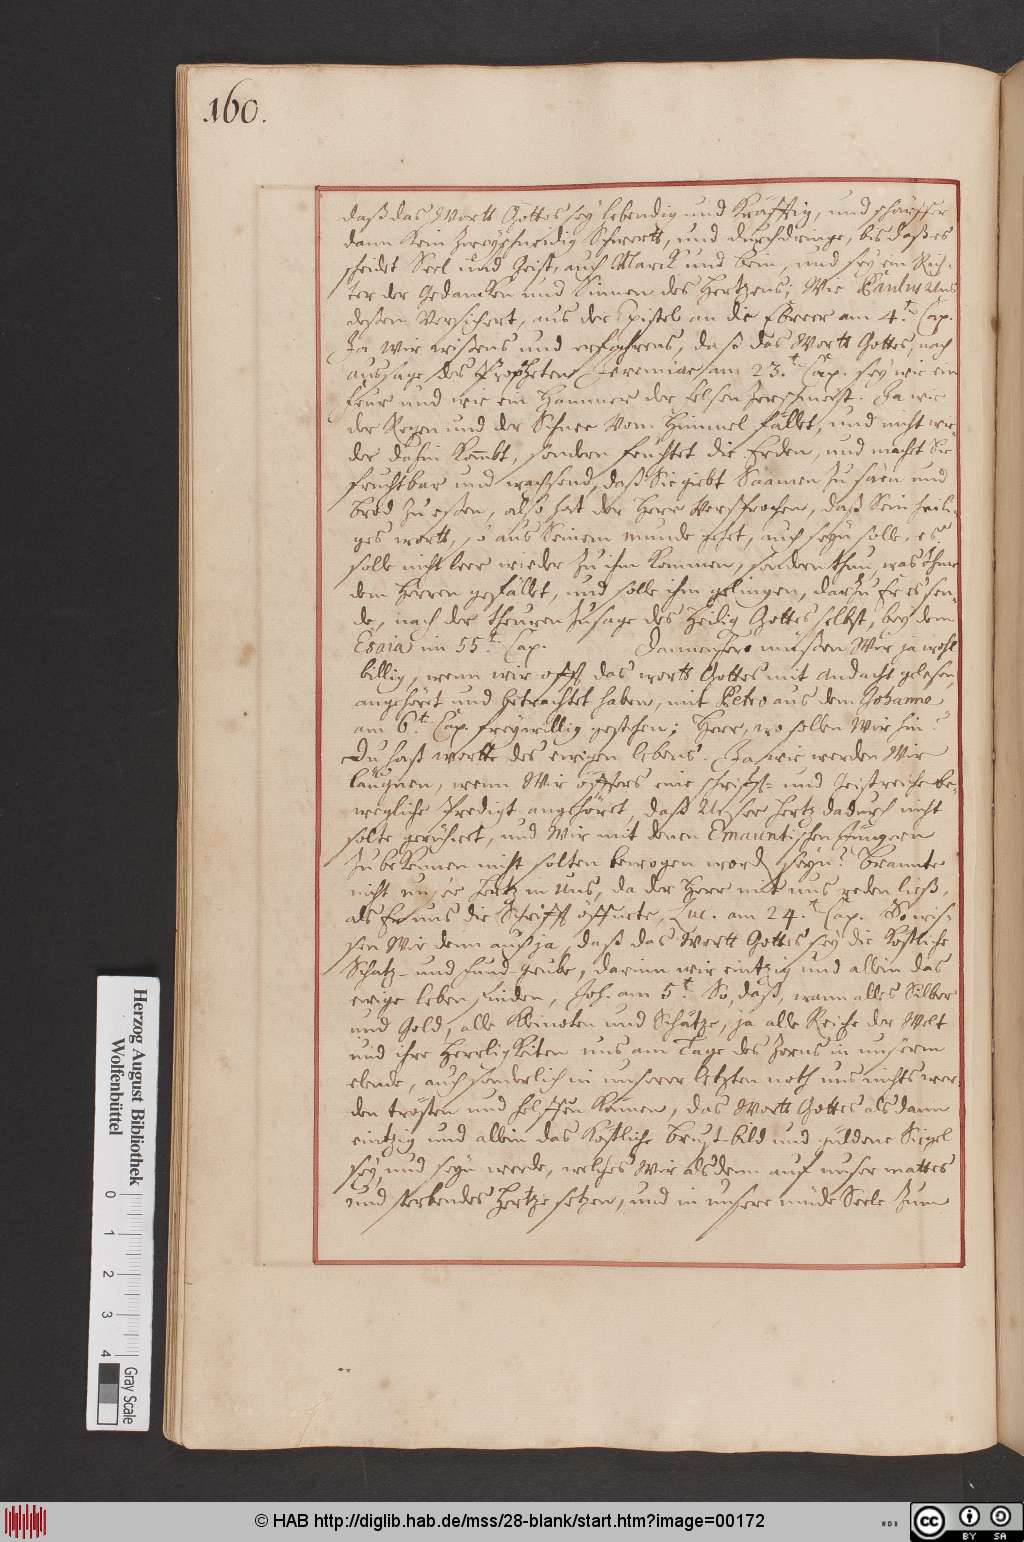 160.
daß das Wortt Gottes sey lebendig und kräfftig, und schärffer
dann kein Zweyschneidig Schwertt, und durchdringe, bis daß es
scheidet Seel und Geist, auch Marck und bein, und sey ein Rich-
ter der Gedancken und Sinnen des Hertzens; Wie Paulus uns
deßen Versichert, aus der Epistel an die Ebreer am 4.t Cap.
Ja Wir wißens und erfahrens, daß das Wortt Gottes, nach
aussage des Propheten Jeremiae am 23.t Cap. sey wie ein
feur und wie ein Hammer der felsen Zerschmeist. Ja wie
der Regen und der Schnee Vom Himmel fället, und nicht wie-
der dahin kombt, sondern feuchtet die Erden, und macht Sie
fruchtbar und wachsend, daß Sie giebt Saamen Zu säen und
brod Zu eßen, also hat der Herr Versprochen, daß Sein heili-
ges wortt, so aus Seinem munde gehet, auch seyn solle, es
solle nicht leer wieder Zu ihm kommen, sondern thun, was Ihme
dem Herren gefället, und solle ihm gelingen, darzu Er es sen-
de, nach der theuren Zusage des Heilig Gottes selbst, bey dem
Esaia im 55.t Cap. Dannenhero müßen Wir ja wohl
billig, wenn wir offt das wortt Gottes mit andacht gelesen,
angehöret und betrachtet haben, mit Petro aus dem Johanne
am 6.t Cap. freywillig gestehen; Herr, wo sollen Wir hin?
Du hast wortte des ewigen lebens. Ja wie werden Wir
läugnen, wenn Wir öffters eine schrifft- und Geistreiche be-
wegliche Predigt angehöret, daß Unser Hertz dadurch nicht
solte gerühret, und Wir mit denen Emauntischen Jüngern
Zu bekennen nicht solten bewogen word seyn? Brannte
nicht unser Hertz in uns, da der Herr mit uns reden ließ,
als Er uns die Schrifft öffnete, Luc. am 24.t Cap. So wis-
sen Wir denn auch ja, daß das Wortt Gottes sey die köstliche
Schatz- und fund-grube, darinn wir eintzig und allein das
ewige leben finden, Joh. am 5.t So, daß, wann alles Silber
und Gold, alle Kleinoten und Schätze, ja alle Reiche der Welt
und ihre Herrligkeiten uns am Tage des Zorns in unserm
elende, auch sonderlich in unserer letzten noth uns nichts wer-
den trösten und helffen können, das Wortt Gottes als dann
eintzig und allein das köstliche Brust-bild und güldene Siegel
sey, und seyn werde, welches Wir alsdenn auf unser mattes
und sterbendes Hertze setzen, und in unsere müde Seele Zum
Herzog August Bibliothek
Wolfenbüttel
0 1 2 3 4
Gray Scale
© HAB http://diglib.hab.de/mss/28-blank/start.htm?image=00172
WDB
cc BY SA